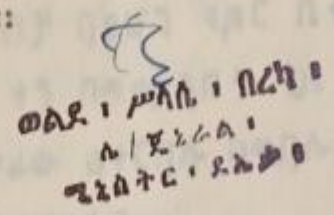 ወልደ ፡ ሥላሴ ፡ በረካ ፡
ሌ / ጄኔራል ፡
ሚኒስትር ፡ ዴኤታ ፡